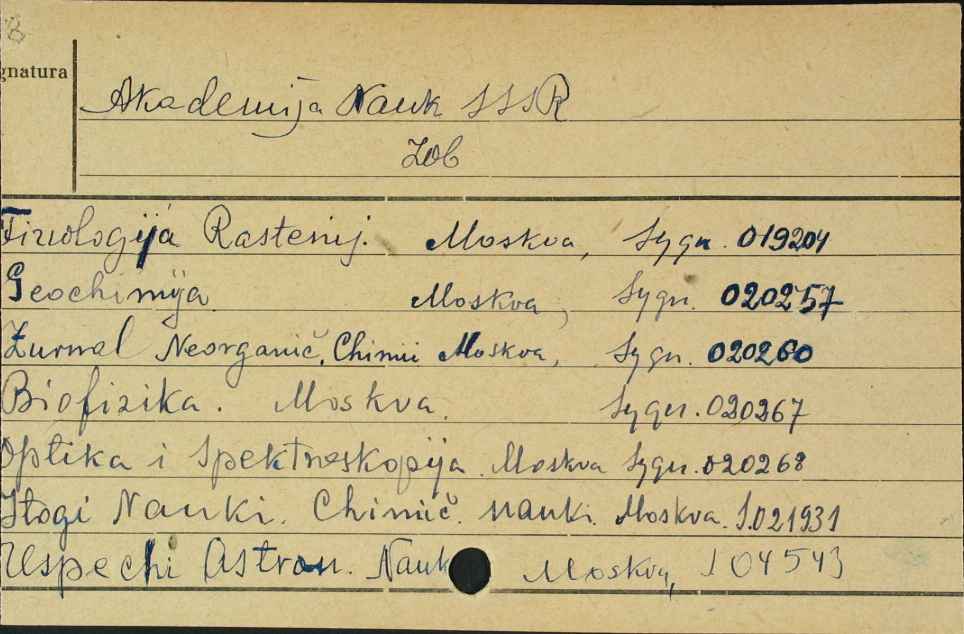 gnatura
Akademija Nauk SSSR
Zob
Fiziologija Rastenij. Moskva, Sygn. 019204
Geochimija Moskva, Sygn. 020257
Żurnal Neorganič. Chimii Moskva, Sygn. 020260
Biofizika. Moskva. Sygn. 020267
Optika i Spektroskopija. Moskva Sygn. 020268
Itogi Nauki. Chimič. nauki. Moskva. S.021931
Uspechi Astron. Nauk Moskva, S 04543